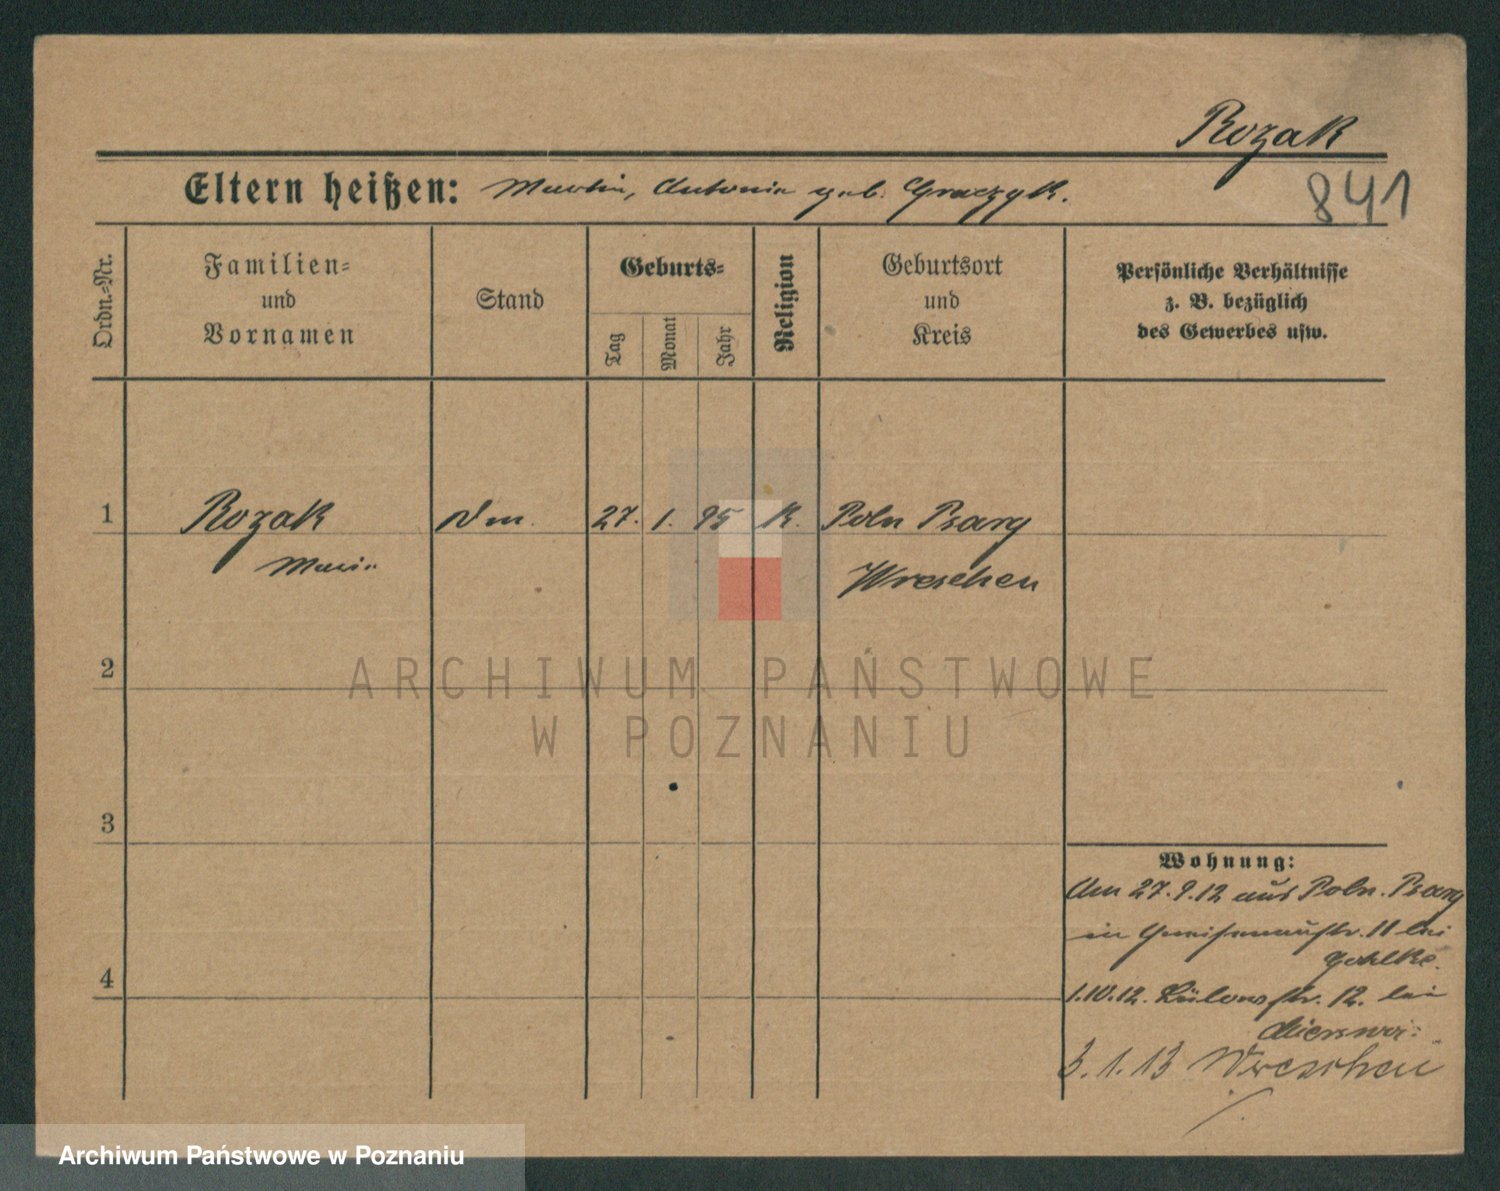 Rozak
Eltern heißen: Martin, Antonie geb. Graczyk.
841
Ordn.-Nr.
Familien-
und
Vornamen
Stand
Geburts-
Tag
Monat
Jahr
Religion
Geburtsort
und
Kreis
Persönliche Verhältnisse
z. B. bezüglich
des Gewerbes usw.
1
Rozak
27. 1. 95
K.
Poln Psary
Marie
Wreschen
2
ARCHIWUM PAŃSTWOWE
W POZNANIU
3
Wohnung:
Am 27.9.12 aus Poln. Psary
in Gneisenaustr. 11 bei
Gohlke.
4
1.10.12. Bülowstr. 12. bei
3.1.13 Wreschen
Archiwum Państwowe w Poznaniu